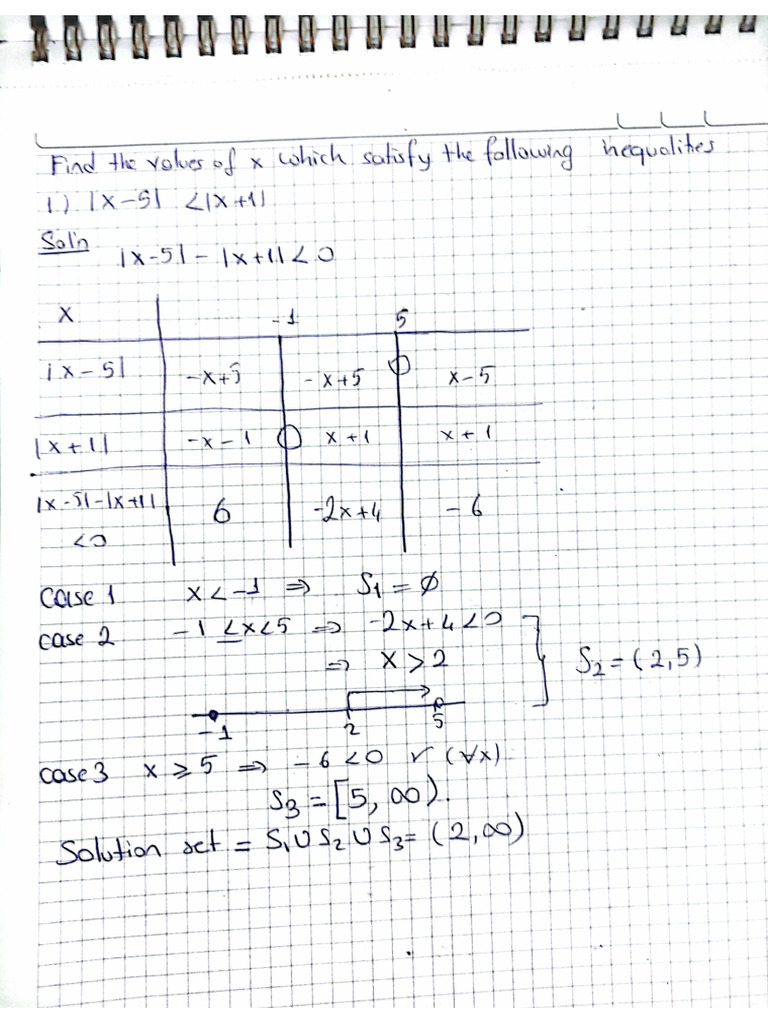 Find the values of x which satisfy the following inequalites
1) |x-5| <|x+1|
Sol'n
|x-5| - |x+1| < 0
x -1 5
|x-5| -x+5 -x+5 x-5
|x+1| -x-1 x+1 x+1
|x-5|-|x+1| 6 -2x+4 -6
<0
case 1 x < -1 ⇒ S₁ = ∅
case 2 -1 ≤ x < 5 ⇒ -2x+4 < 0
⇒ x > 2
S₂ = (2,5)
-1 2 5
case 3 x ≥ 5 ⇒ -6 < 0 ✓ (∀x)
S₃ = [5, ∞).
Solution set = S₁ ∪ S₂ ∪ S₃ = (2, ∞)